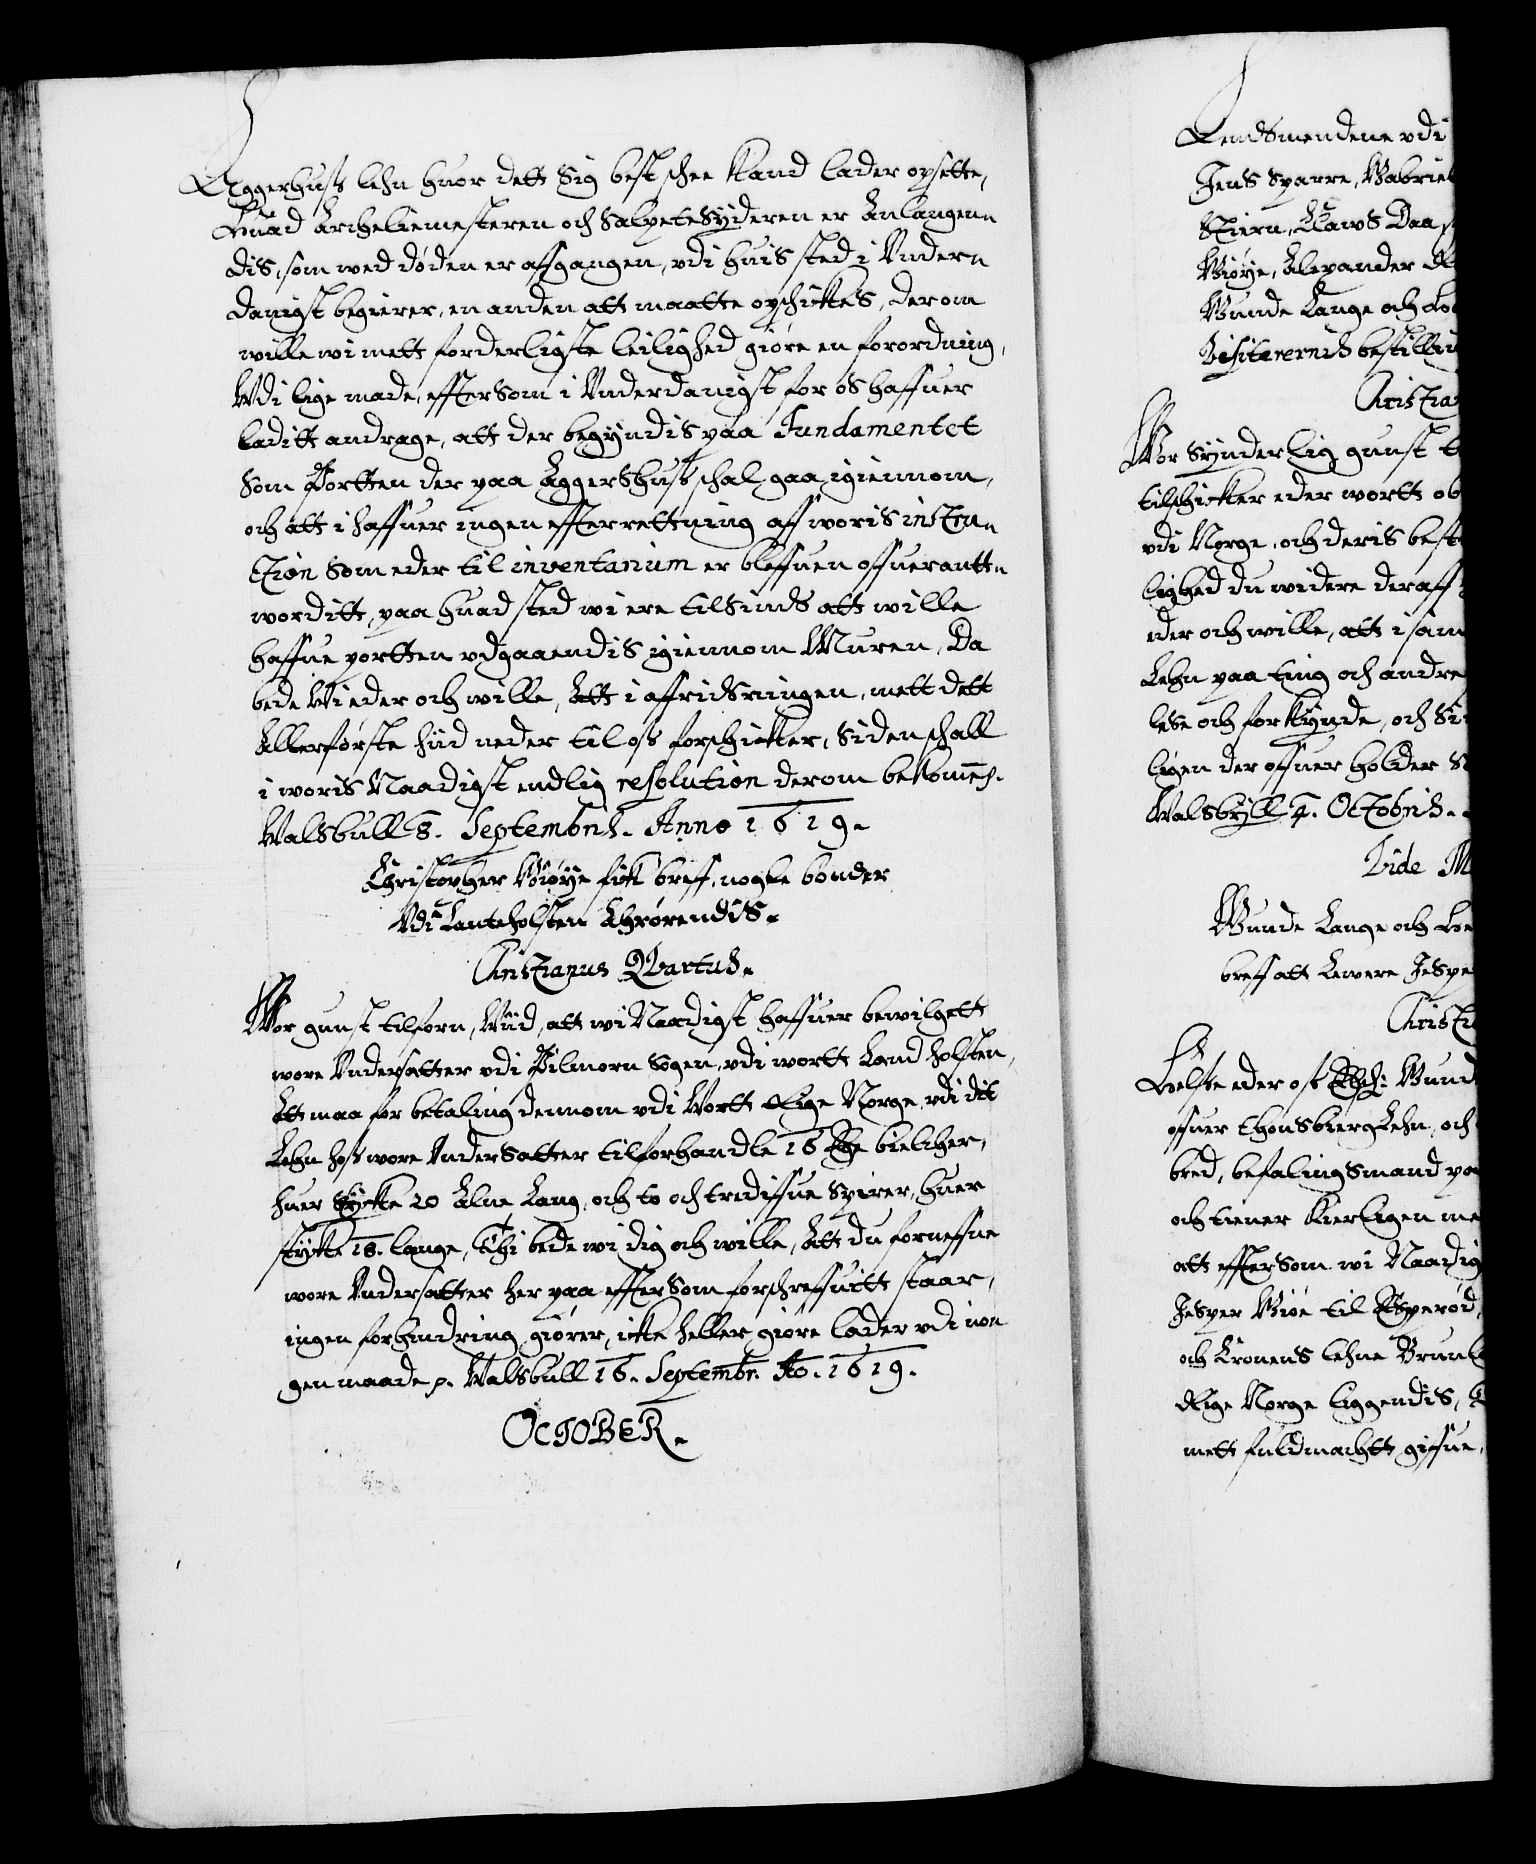 Aggerhuss lehn huor dett sig best schee kand lader opsette,
Huad Archeliemesteren och Salpetesyderen er Anlangen-
dis, som wed døden er affgangen, vdi huis sted i Vnder-
danigst begierer, en anden att maatte opschickes, derom
wille wi mett forderligste leilighed giøre en forordning,
Vdi lige made, effter som i Vnderdanigst for os haffuer
laditt andrage, att der begyndis paa Fundamentet
som Portten der paa Aggershuss schal gaa igiennom,
och att i haffuer ingen effterrettning aff woris instru-
ction som eder til inventarium er bleffuen offuerantt-
worditt, paa huad sted wi ere til sinds att wille
haffue portten vdgaaendis igiennom Muren, Da
bede Wi eder och wille, Att i affridsningen, mett dett
Allerførste hiid neder til oss forschicker, siden schall
i woris Naadigst endlig resolution derom bekomme.
Walsbull 8. Septembris. Anno 1619.
Christopher Giøye fick breff, nogle bønder
Vdi Landtholsten Ahnrørendis.
Christianus Qvartus.
Wor gunst tilforn, Wiid, att wi Naadigst haffuer bewilgett
wore Vndersatter vdi Pilworn Sogen, vdi wortt Land holsten,
Att maa for betaling dennom vdi Wortt Rige Norge, vdi dit
Lehn hoss wore Vndersatter tilforhandle 16 bielcher,
huer stycke 20 Alne Lang, och to och trediffue Spirer, huer
stycke 18. lange, Thi bede wi dig och wille, Att du forneffne
wore Vndersatter her paa effter som forschreffuitt staar,
ingen forhindring giører, icke heller giøre lader vdi non
gen maade p. Walsbull 16. Septembr. Ao. 1619.
OCTOBER.
Lendsmendene vdi
Jens Sparre, Gabriel
Stiern, Claws Daa,
Giøye, Alexander
Gunde Lange och
Visiterernis bestilling
Christia
Wor synderlig gunst
tilschicker eder wortt
vdi Norge, och deris best
lighed du widere deraff
eder och wille, att i sam
Lehn paa ting och andre
lese och forkynde, och
ligen der offuer holder
Walsbyll 4. Octobris.
Vide M
Gunde Lange och
breff att Lewere Jespe
Christi
Helse eder oss Elsch: Gund
offuer thonsberg Lehn, och
bred, befalingsmand paa
och tiener kierligen me
att effter som wi Naadig
Jesper Giøe til Esperød,
och Cronens lehne Brunl
Rige Norge liggendis,
mett fuldmachtt giffue,